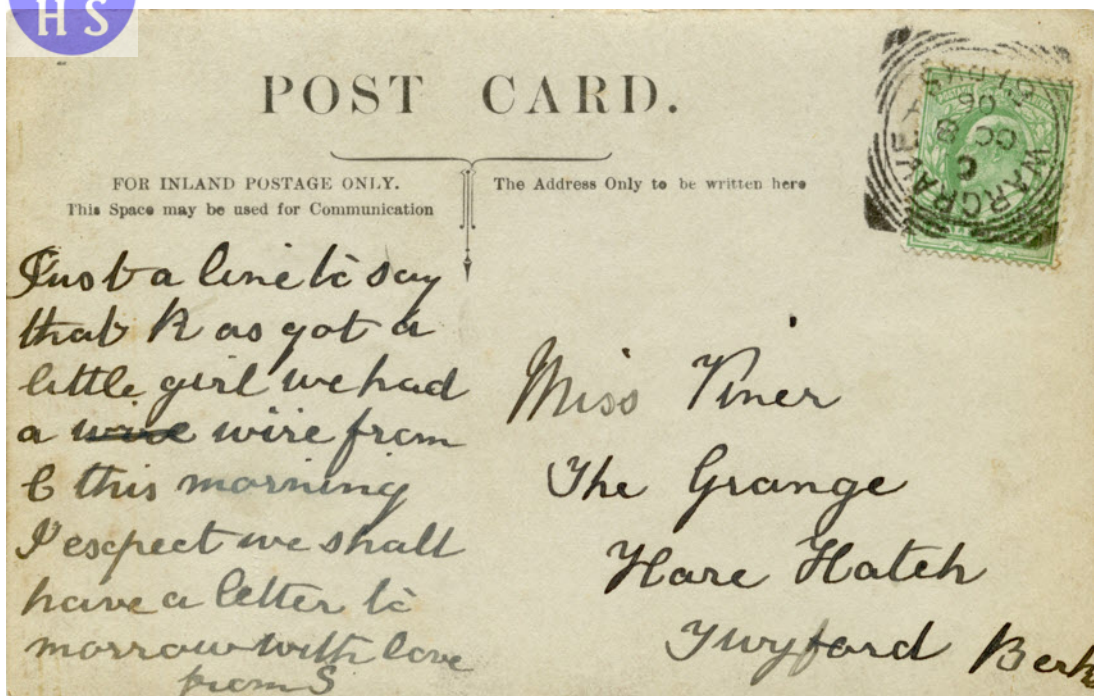 H S
POST CARD.
FOR INLAND POSTAGE ONLY.
This Space may be used for Communication
The Address Only to be written here
WARGRAVE
C
OC 8
06
Just a line to say
that K as got a
little girl we had
a wire wire from
C this morning
I expect we shall
have a letter to
morrow with love
from S
Miss Viner
The Grange
Hare Hatch
Twyford Berks